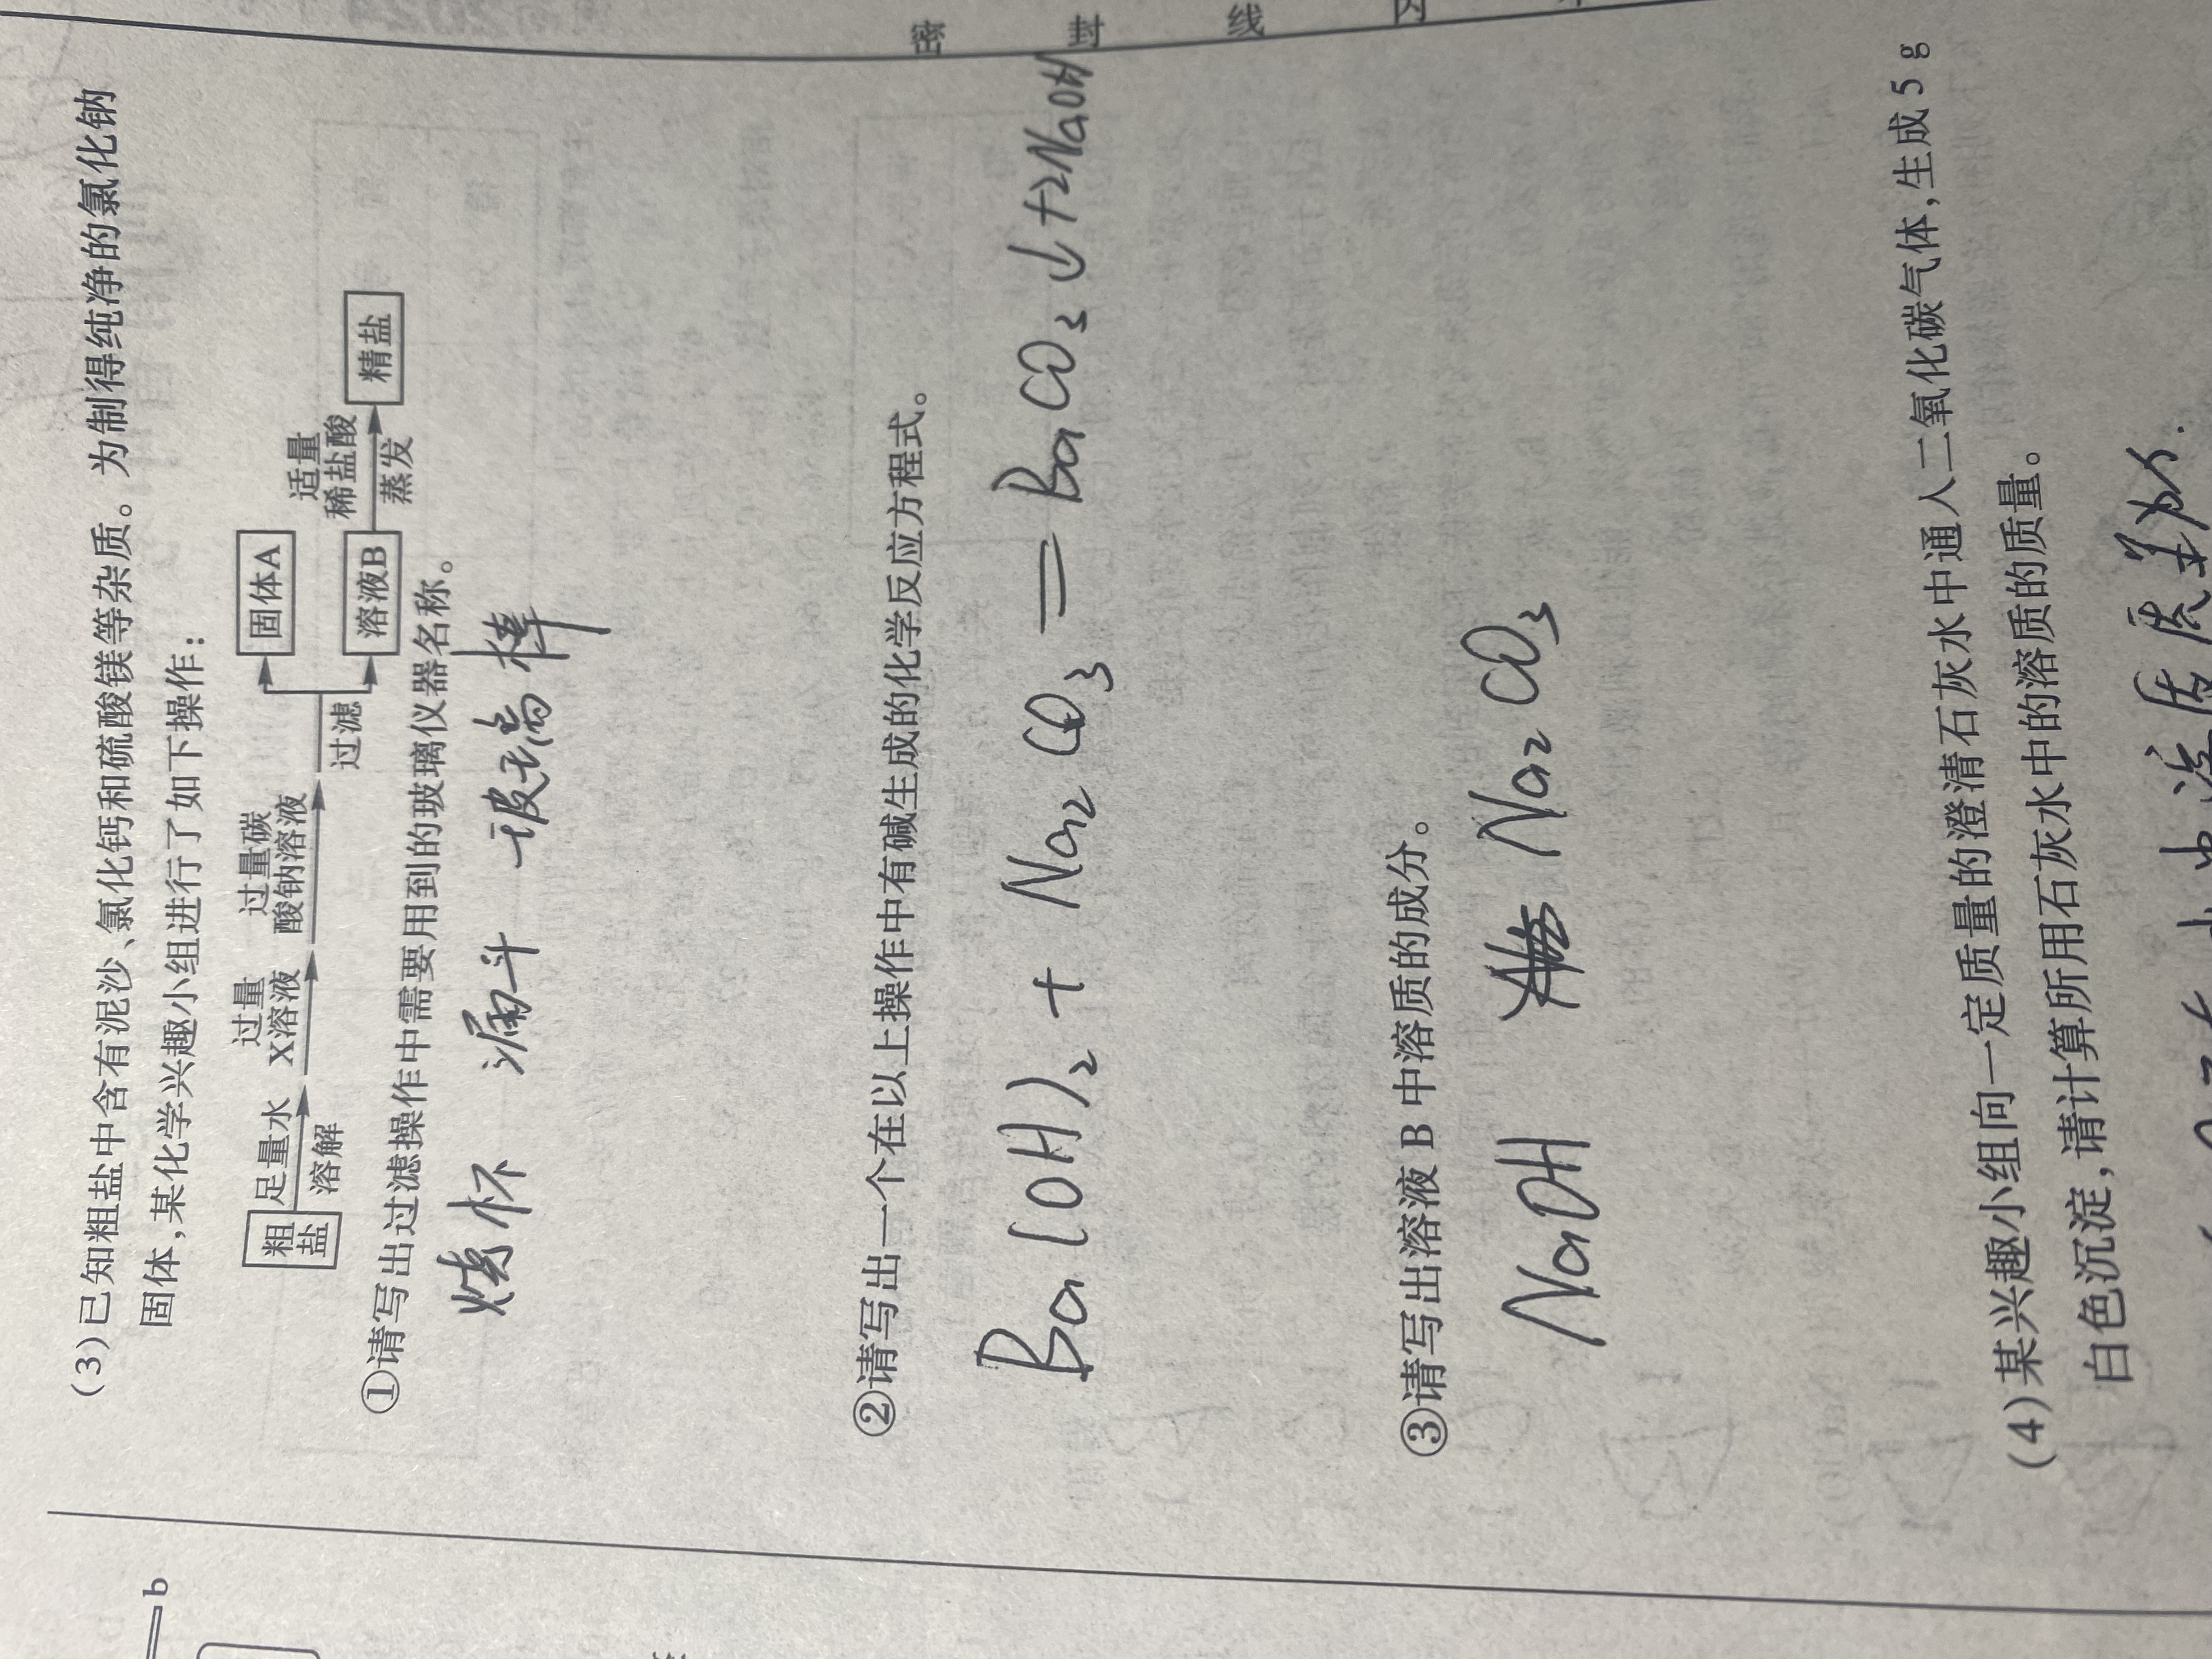 密 封 线
(3)已知粗盐中含有泥沙、氯化钙和硫酸镁等杂质。为制得纯净的氯化钠
固体,某化学兴趣小组进行了如下操作:
粗盐 足量水 溶解 过量X溶液 过量碳酸钠溶液 过滤 固体A 溶液B 适量稀盐酸 蒸发 精盐
①请写出过滤操作中需要用到的玻璃仪器名称。
烧杯 漏斗 玻璃棒
②请写出一个在以上操作中有碱生成的化学反应方程式。
Ba(OH)₂ + Na₂CO₃ = BaCO₃↓+2NaOH
③请写出溶液 B 中溶质的成分。
NaOH Na₂CO₃
(4)某兴趣小组向一定质量的澄清石灰水中通入二氧化碳气体,生成 5 g
白色沉淀,请计算所用石灰水中的溶质的质量。
b